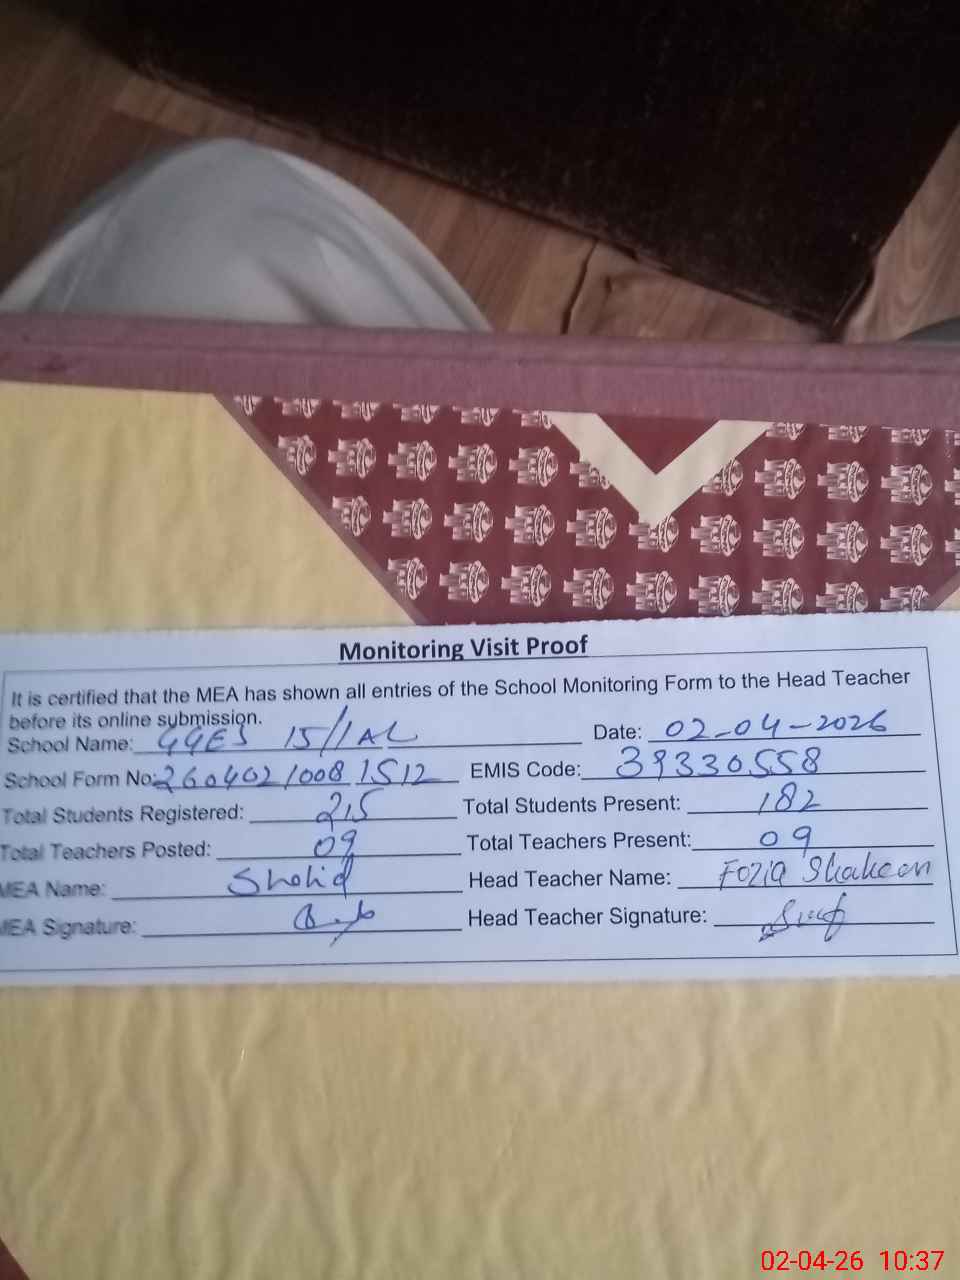 Monitoring Visit Proof
It is certified that the MEA has shown all entries of the School Monitoring Form to the Head Teacher
before its online submission.
School Name: GGES 15/1AL Date: 02-04-2026
School Form No: 26040210081512 EMIS Code: 39330558
Total Students Registered: 215 Total Students Present: 182
Total Teachers Posted: 09 Total Teachers Present: 09
MEA Name: Shahid Head Teacher Name: Fozia Shaheen
MEA Signature: Head Teacher Signature:
02-04-26 10:37